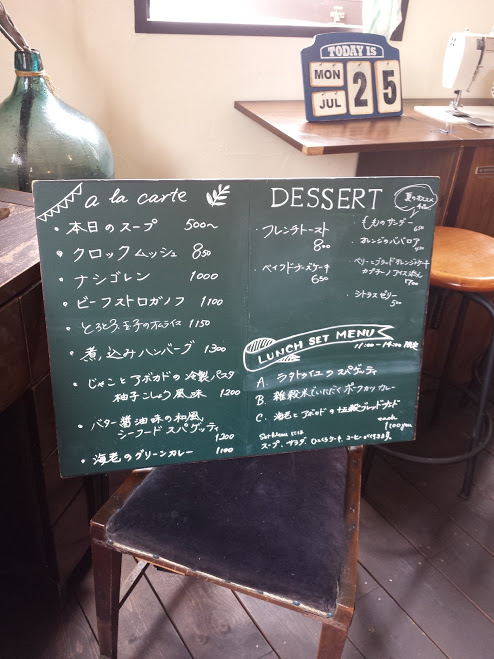 TODAY IS
MON
JUL
25
a la carte
・本日のスープ 500〜
・クロックムッシュ 850
・ナシゴレン 1000
・ビーフストロガノフ 1100
・とろとろ玉子のオムライス 1150
・煮込みハンバーグ 1300
・じゃことアボカドの冷製パスタ
柚子こしょう風味 1200
・バター醤油味の和風
シーフードスパゲッティ
1200
・海老のグリーンカレー 1100
DESSERT
フレンチトースト
800
ベイクドチーズケーキ
650
夏のオススメ
・もものサンデー
650
・オレンジのババロア
・ベリーとブラッドオレンジのケーキ
カプチーノアイス添え
・シトラスゼリー
500
LUNCH SET MENU
11:00-14:00 限定
A. ラタトゥイユのスパゲッティ
B. 雑穀米でいただくポークカツカレー
C. 海老とアボカドの
each
1100yen
Set Menu には
スープ、サラダ、コーヒーが付きます。